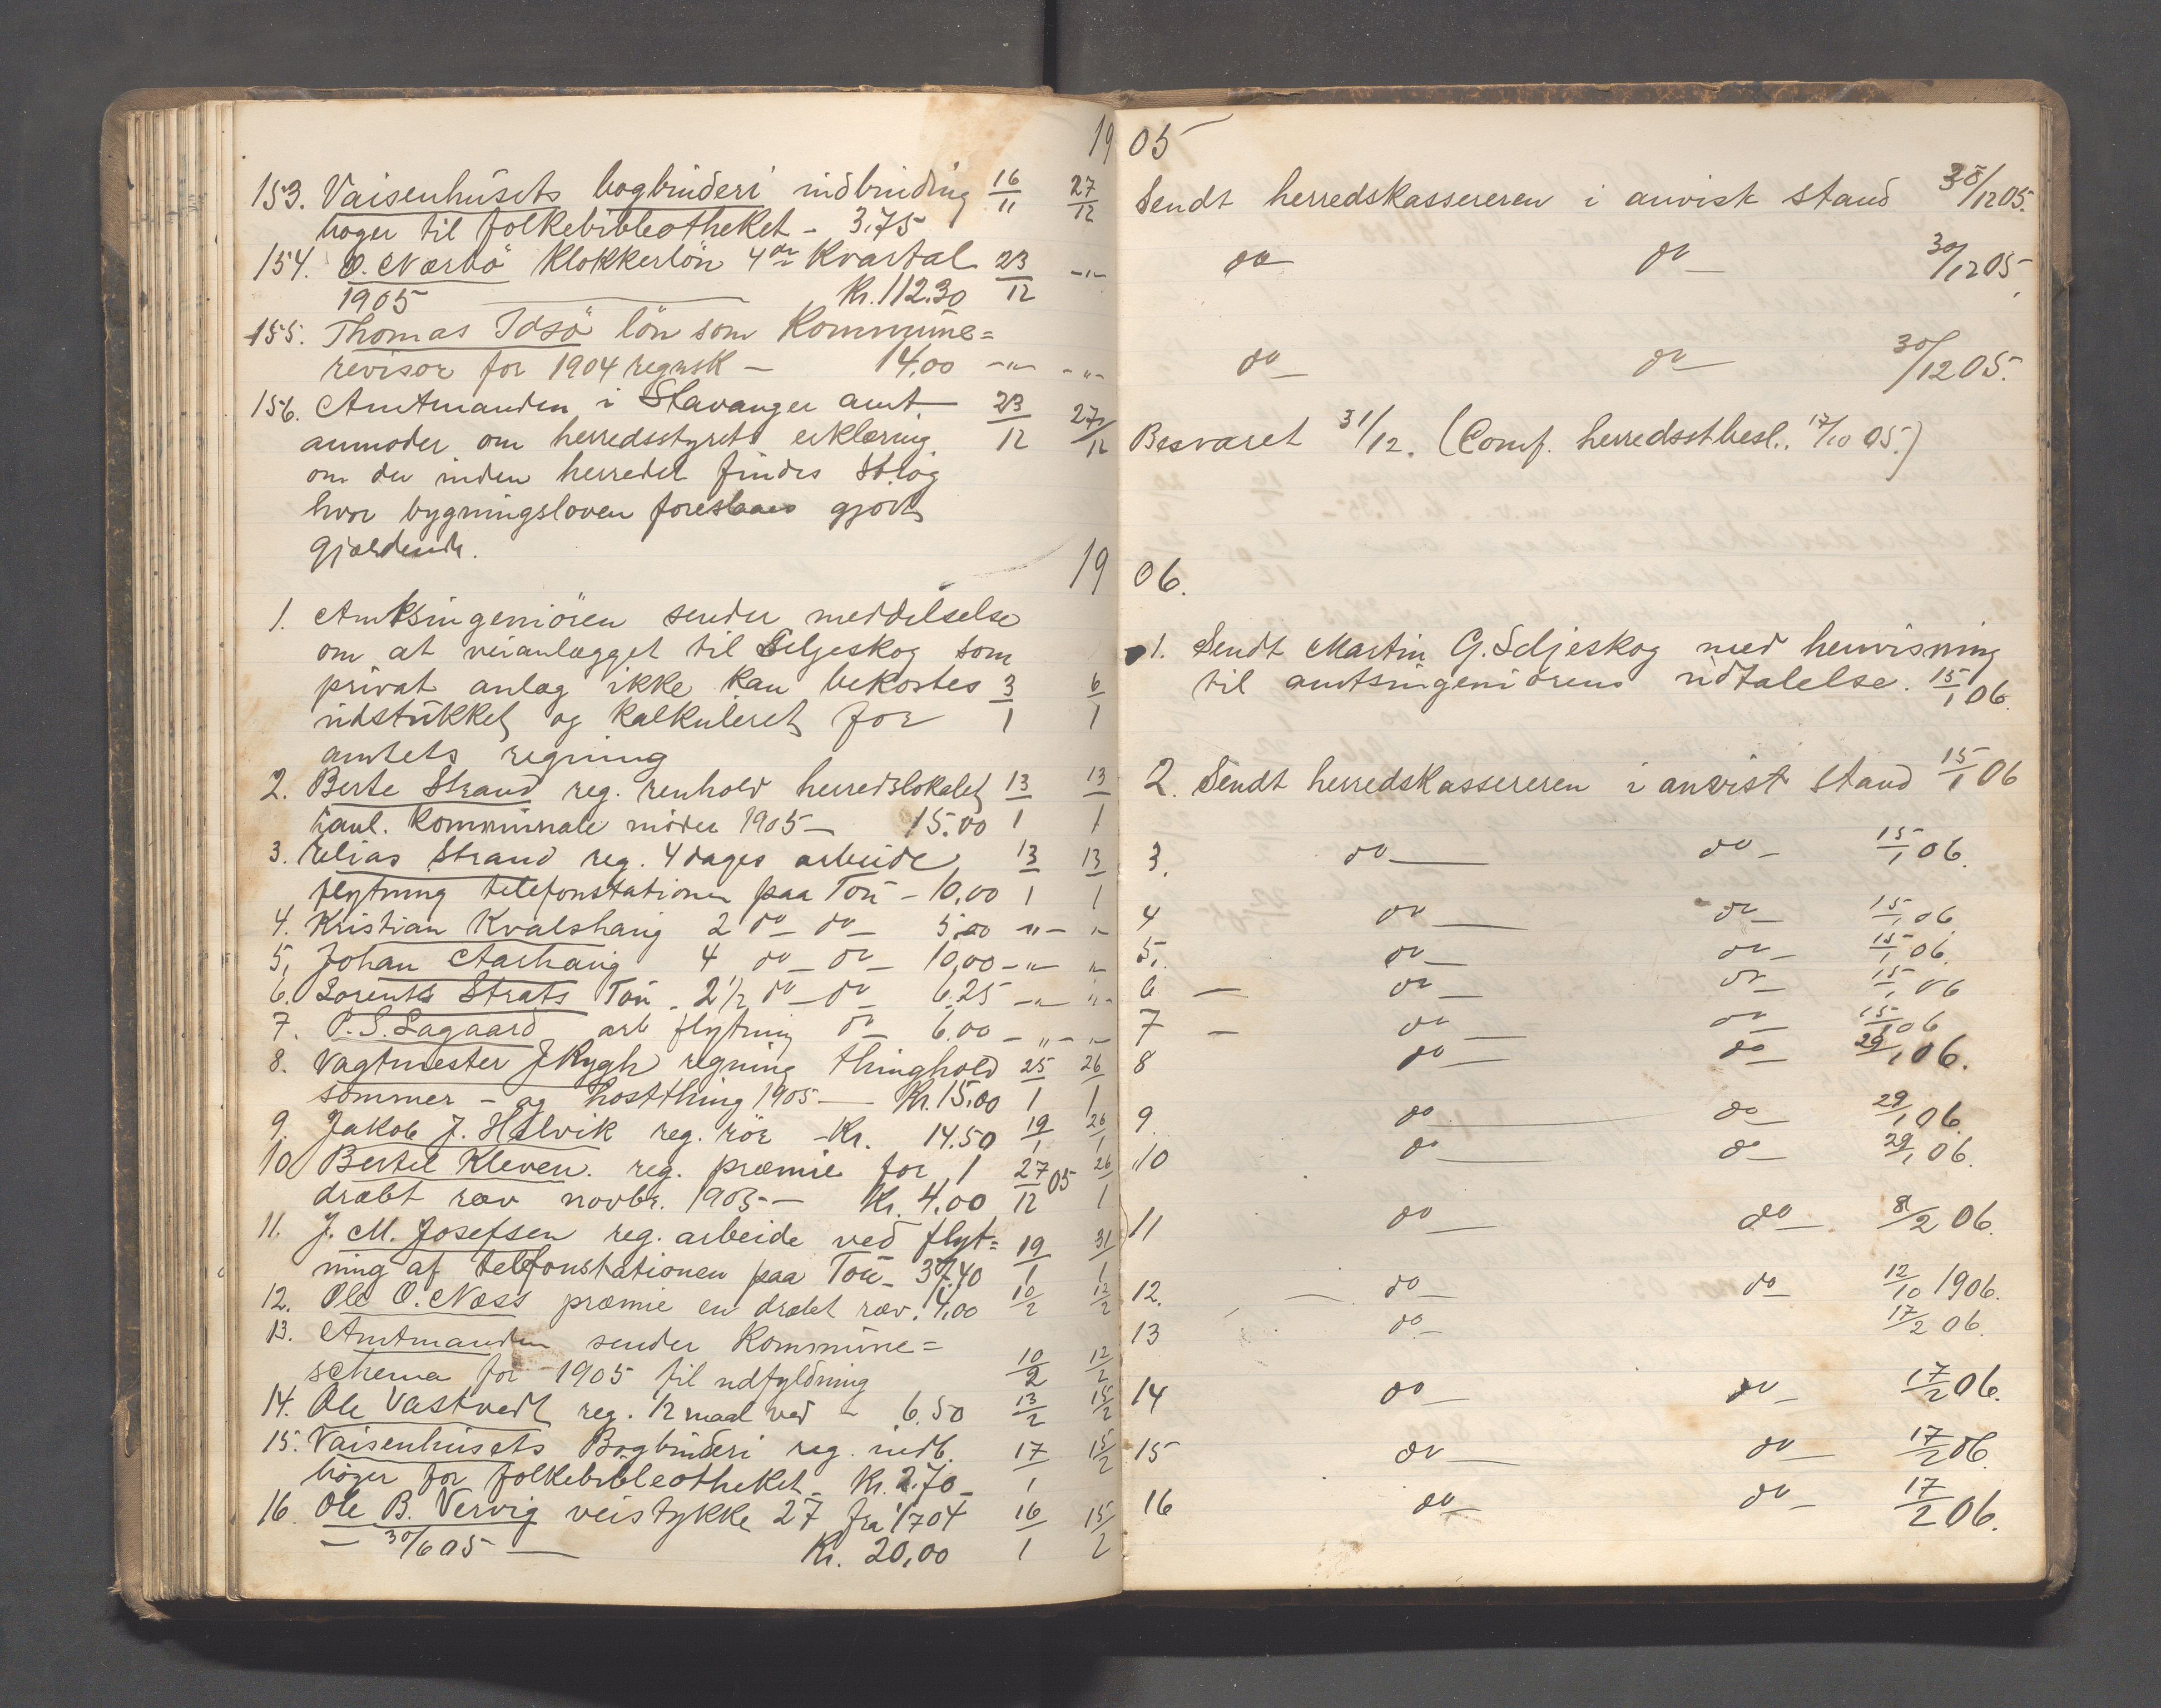 1905
153. Vaisenhusets bogbinderi indbinding 16/11 27/12
bøger til folkebibliotheket - 3.75
154. O. Nærbø Klokkerløn 4de Kvartal 23/12 -"-
1905 Kr. 112.30
155. Thomas Idsø løn som Kommune=
revisor for 1904 regnsk - 14.00 -"- -"-
156. Amtmanden i Stavanger amt 23/12 27/12
anmoder om herredsstyrets erklæring
om der inden herredet findes strøg
hvor bygningsloven foreslaaes gjort
gjældende.
1906.
1. Amtsingeniøren sender meddelelse
om at veianlægget til Seljeskog som
privat anlæg ikke kan bekostes 3/1 6/1
udstukket og kalkuleret for
amtets regning
2. Berte Strand reg. renhold herredslokalet 13/1 13/1
kommunale møder 1905 - 15.00
3. Elias Strand reg. 4 dages arbeide 13/1 13/1
flytning telefonstationen paa Tou - 10,00
4. Kristian Kvalshaug 2 do - do - 5.00 -"- "-
5. Johan Aarhaug 4 do - do - 10,00 -"- "-
6. Lorents Strats Tou - 2 1/2 do - do - 6.25 -"- "-
7. P. S. Lagaard arb flytning do - 6.00 -"- "-
8. Vagtmester J Rygh regning thinghold 25/1 26/1
sommer - og høstthing 1905 - Kr. 15.00
9. Jakob J. Helvik reg. rør - Kr. 14.50 19/1 26/1
10 Bertel Kleven. reg. præmie for 1 27/12 05 26/1
dræbt ræv novbr. 1905 - Kr. 4.00
11. J. M. Josefsen reg. arbeide ved flyt= 19/1 31/1
ning af telefonstationen paa Tou -
12. Ole O. Næss præmie en dræbt ræv. 4,00 10/2 12/2
13. Amtmanden sender Kommune=
schema for 1905 til udfyldning 10/2 12/2
14. Ole Vastvedt reg. 1/2 maal ved - 6.50 13/2 15/2
15. Vaisenhusets Bogbinderi reg. indb. 17/1 15/2
bøger for folkebibleotheket - Kr. 2.70 -
16. Ole B. Vervig veistykke 27 fra 1/7 04 16/1 15/2
- 30/6 05 - Kr. 20,00
Sendt herredskassereren i anvist stand 30/12 05.
do do - 30/12 05.
do - do - 30/12 05.
Besvaret 31/12. (Comf. herredsstbesl. 17/10 05.)
1. Sendt Martin G. Seljeskog med henvisning
til amtsingeniørens udtalelse. 15/1 06.
2. Sendt herredskassereren i anvist stand 15/1 06
3. do - do - 15/1 06.
4 do - do - 15/1 06.
5. do - do - 15/1 06.
6 - do - do - 15/1 06
7 - do - do - 15/1 06
8 do - do - 29/1 06.
9. do - do - 29/1 06.
10 do - do - 29/1 06.
11 do - do - 8/2 06.
12. do - do - 12/10 1906.
13 do - 17/2 06.
14 do - do - 17/2 06.
15 do - do - 17/2 06.
16 do - do - 17/2 06.